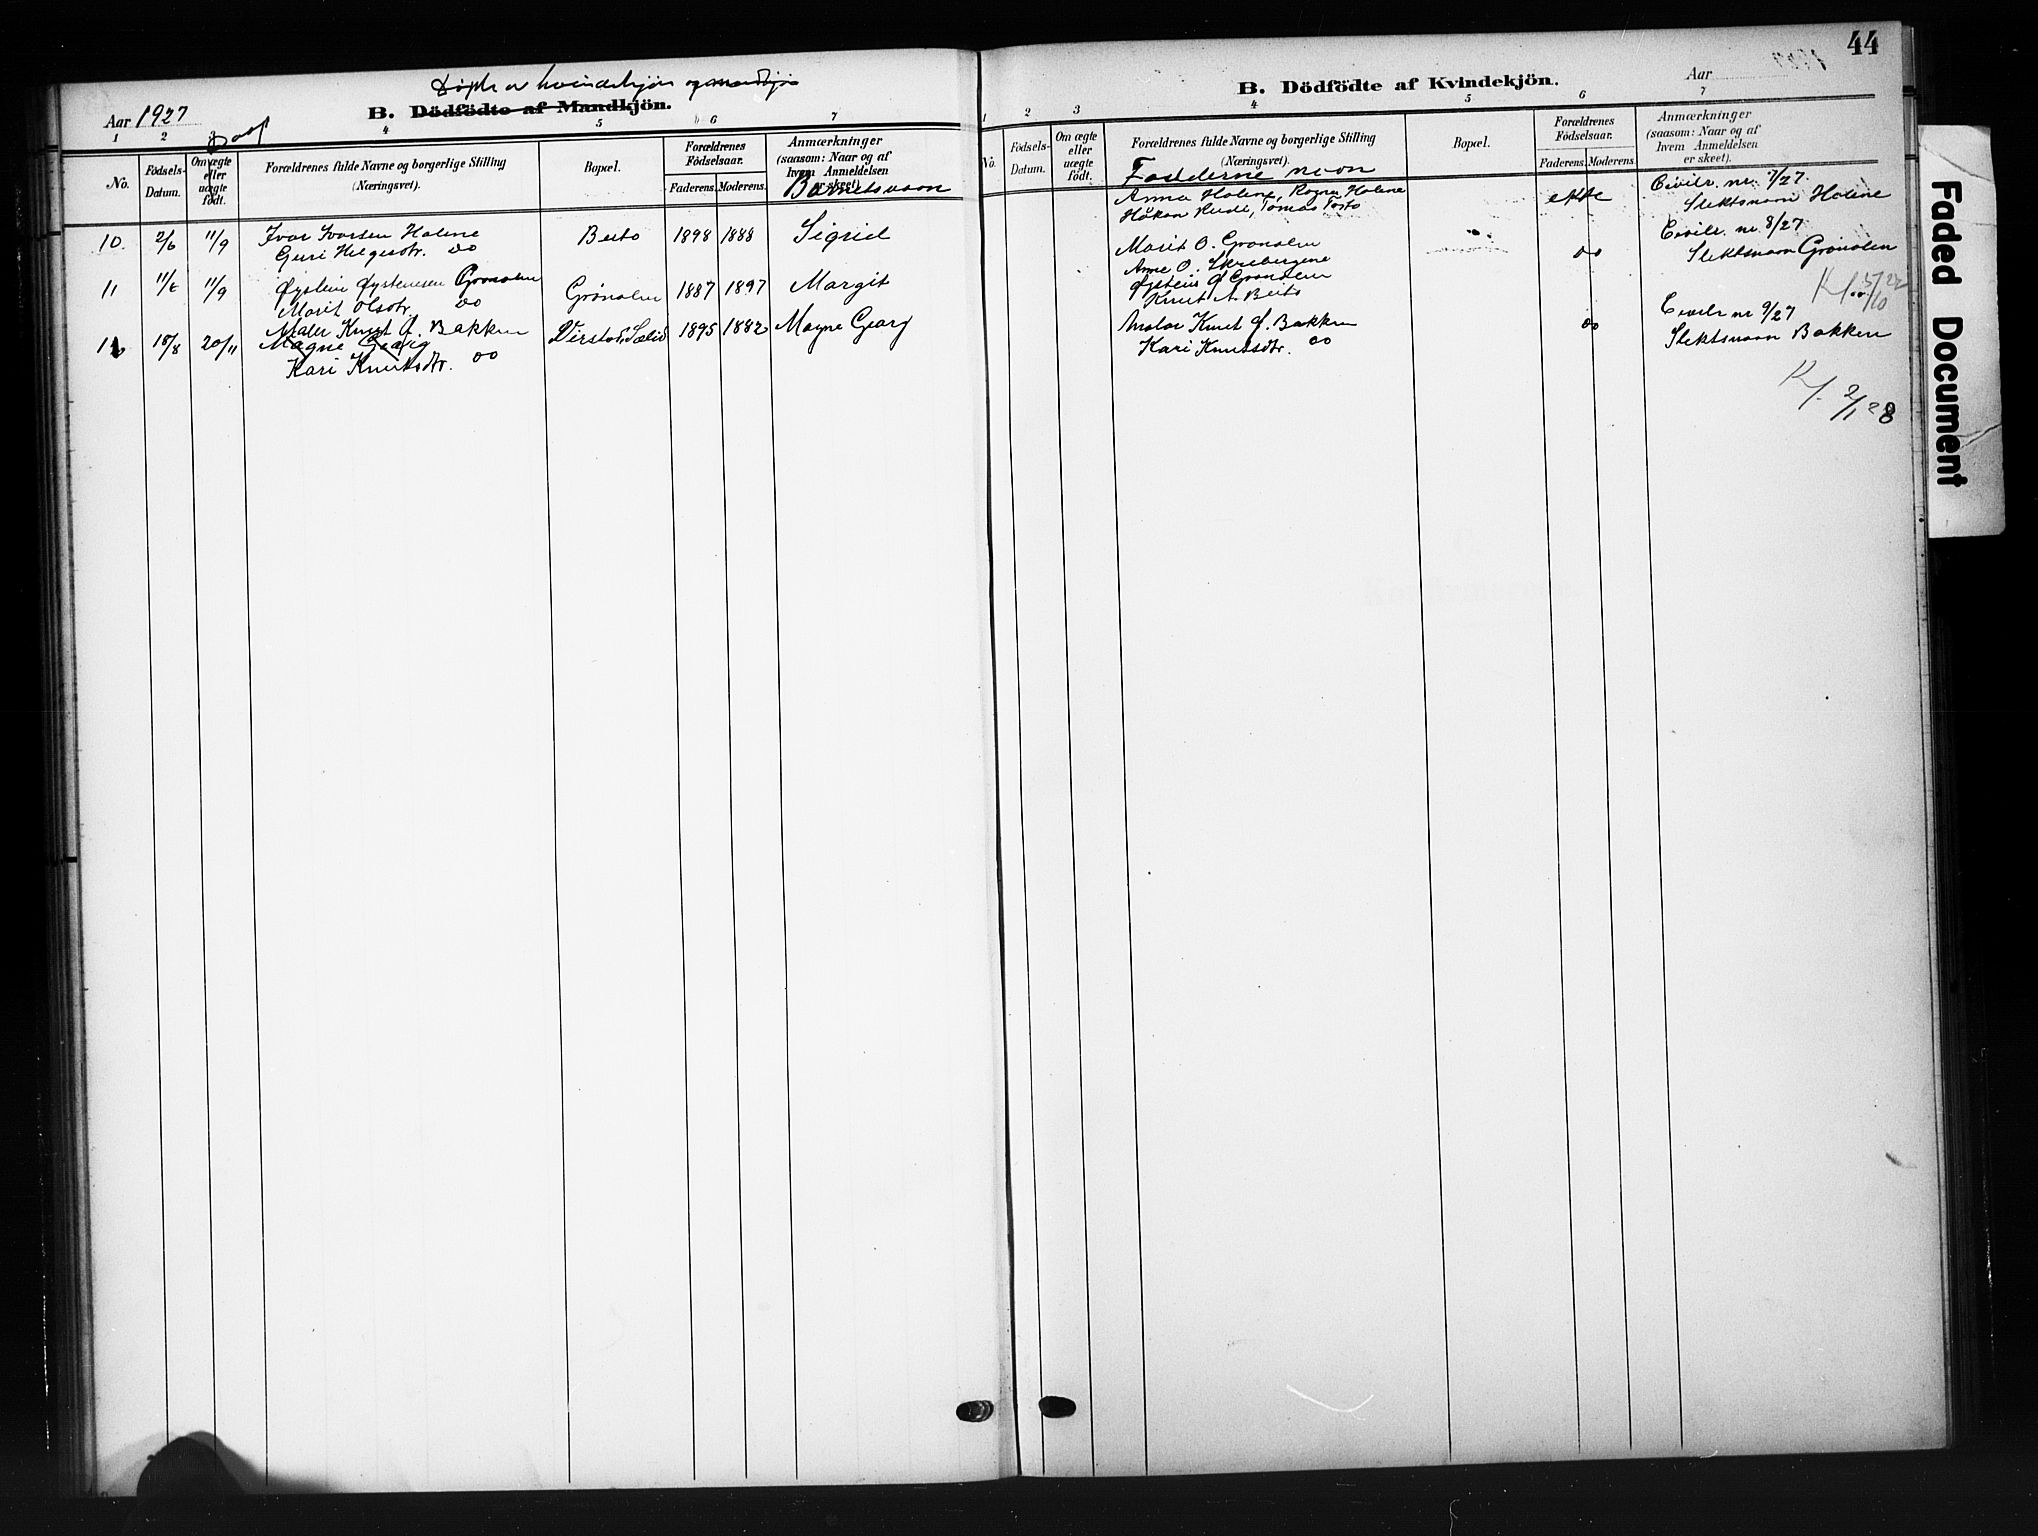 44
Døpte av kvindekjøn og mandkjøn
Aar 1927
B. Dödfödte af Mandkjön.
Daap
1 2 3 4 5 6 7
No.
Födsels-
Datum.
Om ægte
eller
uægte
födt.
Forældrenes fulde Navne og borgerlige Stilling
(Næringsvei).
Bopæl.
Forældrenes
Födselsaar.
Faderens. Moderens.
Anmærkninger
(saasom: Naar og af
hvem Anmeldelsen
er skeet).
Barnets navn
10. 2/6 11/9 Ivar Ivarsen Holene Beito 1898 1888 Sigrid
Guri Helgesdtr. do
11 11/6 11/9 Øystein Øysteinsen Grønolen Grønolen 1887 1897 Margit
Marit Olsdtr. do
Maler Knut O. Bakken
12 18/8 20/11 Magne Georg 1895 1882 Magne Georg
Kari Knutsdtr. do
B. Dödfödte af Kvindekjön.
Aar
1 2 3 4 5 6 7
No.
Födsels-
Datum.
Om ægte
eller
uægte
födt.
Forældrenes fulde Navne og borgerlige Stilling
(Næringsvei).
Bopæl.
Forældrenes
Födselsaar.
Faderens. Moderens.
Anmærkninger
(saasom: Naar og af
hvem Anmeldelsen
er skeet).
Fadderne navn
Anna Holene, Ragna Holene ekte Civilr. nr. 7/27.
Håkon Rudi, Tomas Slektsnavn Holene
Marit O. Grønolen do Civilr. nr. 8/27
Anne O. Skrebergene Slektsnavn Grønolen
Øystein Ø Grønolen
Knut A. Beito
Maler Knut O. Bakken do Civilr nr 9/27
Kari Knutsdtr. do Slektsnavn Bakken
K/. 2/1 28
Faded Document